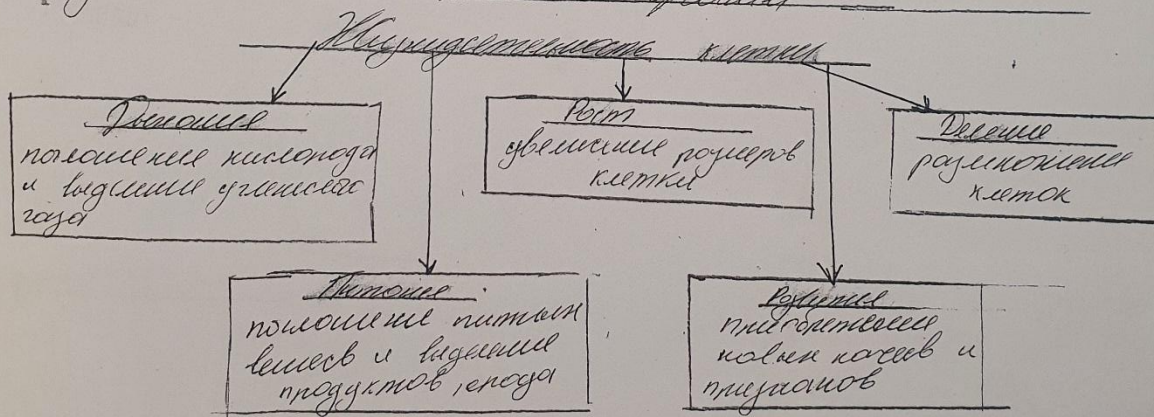 Жизнедеятельность клетки
Дыхание
поглошение кислорода
и выдление углекислого
газа
Рост
увеличение розмеров
клетки
Деление
размножение
клеток
Питание
поглошение
вешесв и выдление
продуктов
Розвития
приобретение
новых качесв и
признаков